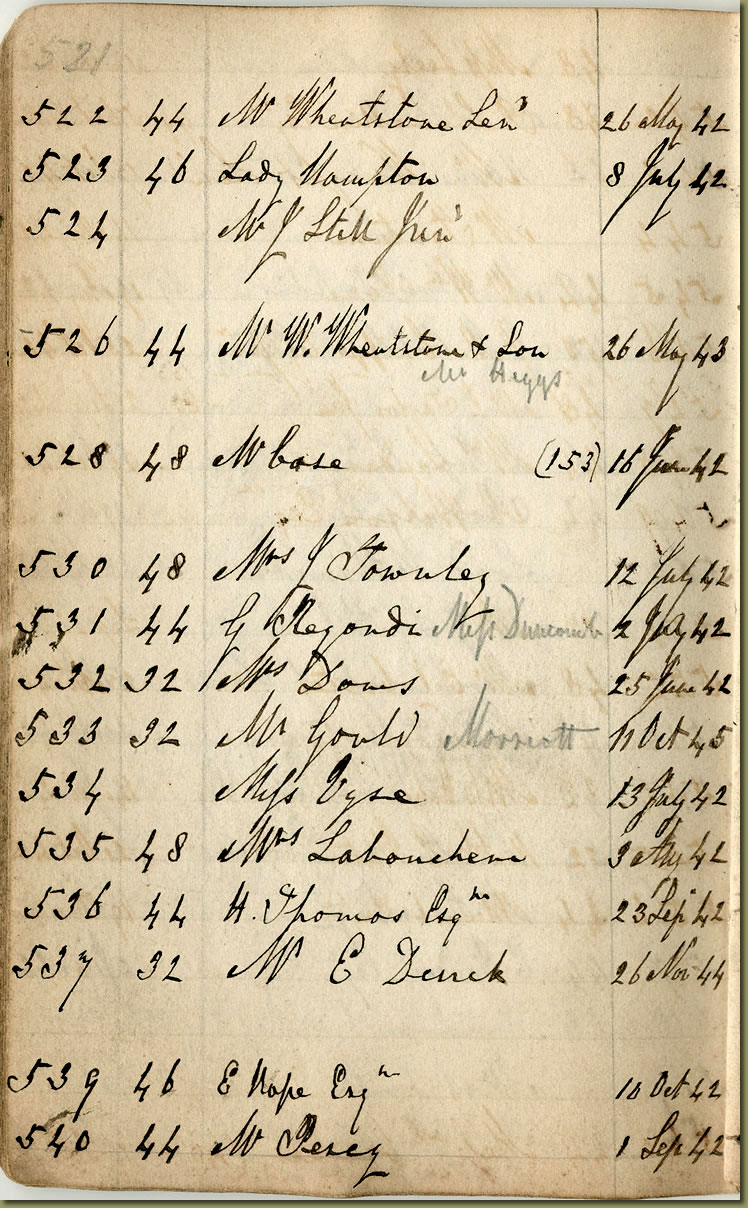 521
522 44 Mr Wheatstone Senr 26 May 42
523 46 Lady Hampton 8 July 42
524 Mr J Still Junr
526 44 Mr W. Wheatstone & Son 26 May 43
Mr Higgs
528 48 Mr Case (153) 16 June 42
530 48 Mrs J Townley 12 July 42
531 44 G Regondi Miss Duncomb 2 July 42
532 32 Mrs Daws 25 June 42
533 32 Mr Gould Marriott 11 Oct 45
534 Miss Vyse 13 July 42
535 48 Mrs Labouchere 3 42
536 44 H. Thomas Esqre 23 Sep 42
537 32 Mr E Derrick 26 Nov 44
539 46 E Hope Esqre 10 Oct 42
540 44 Mr Percy 1 Sep 42